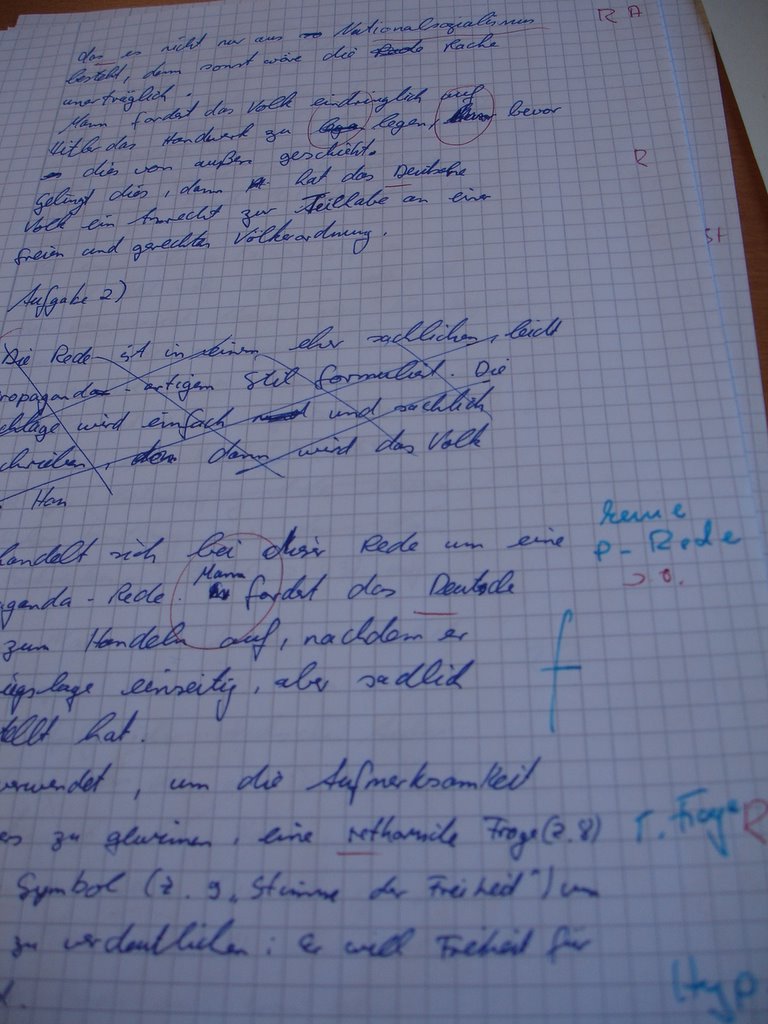 das es nicht nur aus Nationalsozialismus R A
besteht, denn sonst wäre die Rache
unerträglich.
Mann fordert das Volk eindringlich auf
Hitler das Handwerk zu legen, bevor
dies von außen geschieht. R
Gelingt dies, dann hat das Deutsche
Volk ein Anrecht zur Teilhabe an einer
freien und gerechten Völkerordnung. St
Aufgabe 2)
Die Rede ist in einem eher sachlichen, leicht
ropaganda-artigem Stil formuliert. Die
wird einfach und sachlich
chrieben, dann wird das Volk
Han
handelt sich bei dieser Rede um eine keine
aganda-Rede. Mann fordert das Deutsche P-Rede
zum Handeln auf, nachdem er s.o.
iegslage einseitig, aber sachlich f
ellt hat.
verwendet, um die Aufmerksamkeit
ers zu gewinnen, eine rethorische Frage (Z. 8) r. Frage R
Symbol (Z. 9 „Stimme der Freiheit") um
zu verdeutlichen: Er will Freiheit für
Hyp